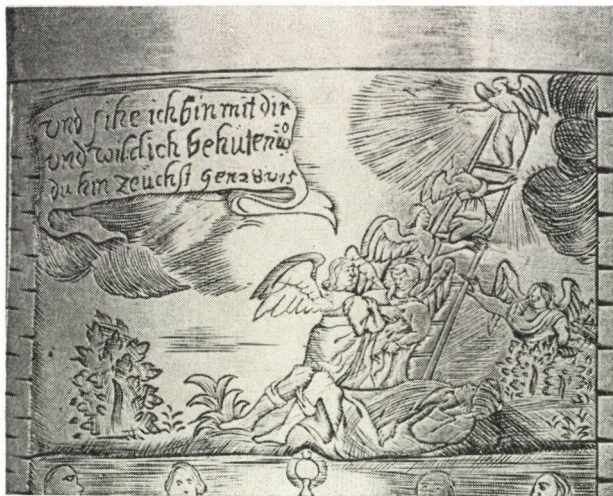 Und sihe ich bin mit dir
und wil dich behüten wo
du hin zeuchst Gen 28 v 15